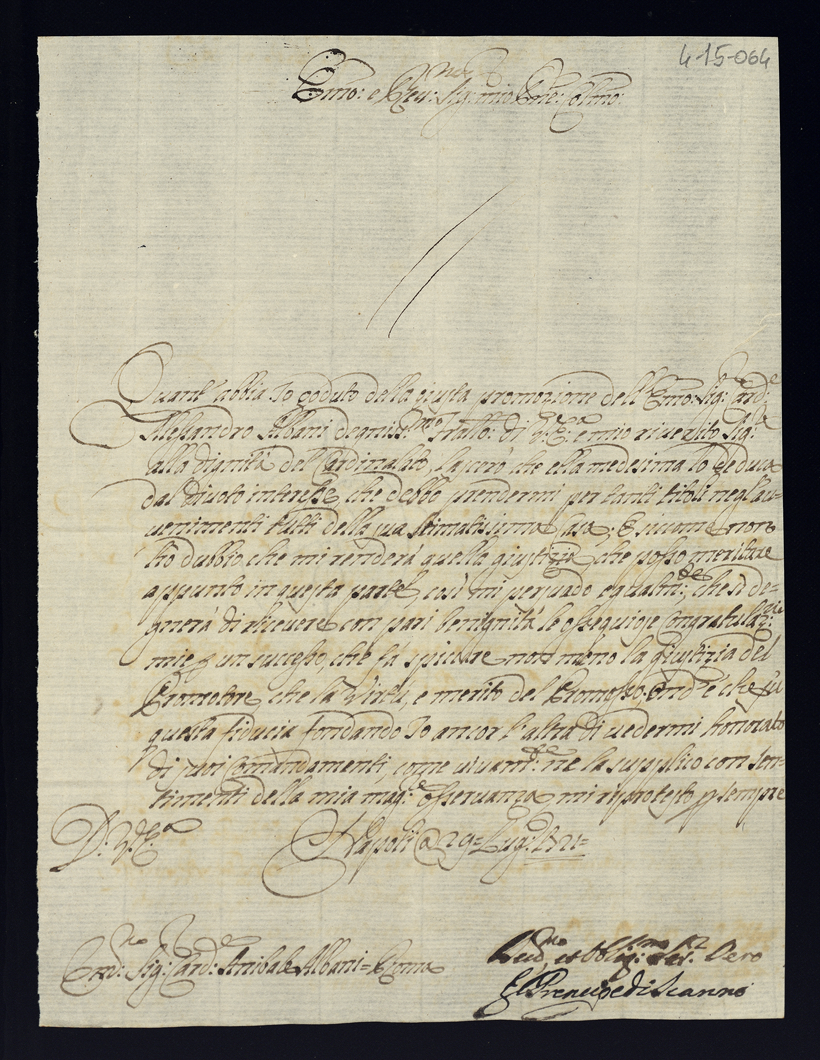 4-15-064
Emo: e Rev:mo Sig: mio Pne: Colmo:
Quant' abbia Io goduto della giusta promozione dell' Emo: Sig:r Card:e
Alessandro Albani degniss:mo Fratło: di V:E:a e mio riverito Sig:re
alla dignità del Cardinalato, lascerò che ella medesima lo deduca
dal divoto interesse, che debbo prendermi per tanti titoli negl'au-
venimenti tutti della sua stimatissima Casa; E siccome non
hò dubbio che mi renderà quella giustizia, che posso meritare
appunto in questa parte, così mi persuado egualm:te, che si de-
gnerà di ricevere con pari benignità le ossequiose Congratulaz:ni
mie p un successo, che fà spiccare non meno la Giustizia del
Promotore, che la Virtù, e merito del Promosso. Ond'è che su
questa fiducia fondando Io ancor l'altra di vedermi honorato
di suoi Comandamenti, come vivam:te ne la supplico con sen-
timenti della mia mag:e osservanza mi riprotesto p sempre
D: V: E:a
Napoli @ 29= Lug: 1721=
Sig: Card:e Annibale Albani= Roma
Div:mo et Obblig:mo Ser:re Vero
Il Prencipe di Scanno